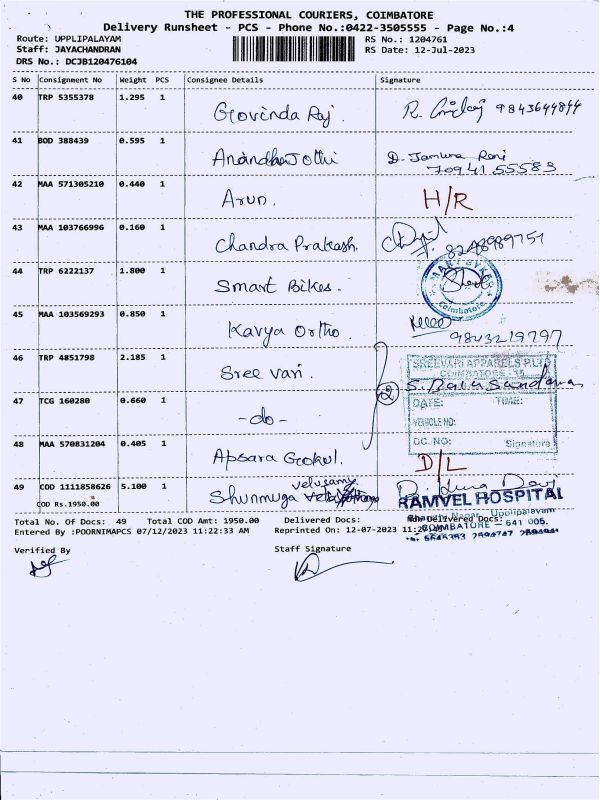 THE PROFESSIONAL COURIERS, COIMBATORE
Delivery Runsheet - PCS - Phone No.:0422-3505555 - Page No.:4
Route: UPPLIPALAYAM RS No.: 1204761
Staff: JAYACHANDRAN RS Date: 12-Jul-2023
DRS No.: DCJB120476104
S No Consignment No Weight PCS Consignee Details Signature
40 TRP 5355378 1.295 1 Govinda Raj. R. 9843644844
41 BOD 388439 0.595 1 Anandha Jothi D. Jamuna Rani
7094155583
42 MAA 571305210 0.440 1 Arun. H/R
43 MAA 103766996 0.160 1 Chandra Prakash. 8248989751
44 TRP 6222137 1.800 1 Smart Bikes. Coimbatore
45 MAA 103569293 0.850 1 Kavya Ortho.
9843219797
46 TRP 4851798 2.185 1 Sree vari. 2
SREEVARI APPARELS P LTD
COIMBATORE - 15
DATE: TIME:
47 TCG 160280 0.660 1 -do-
VEHICLE NO:
DC. NO: Signature
48 MAA 570831204 0.405 1 Apsara Gokul. D/L
49 COD 1111858626 5.100 1 Shunmuga velusamy
COD Rs.1950.00
RAMVEL HOSPITAL
Total No. Of Docs: 49 Total COD Amt: 1950.00 Delivered Docs: Delivered Docs:
Uppilipalayam
Entered By :POORNIMAPCS 07/12/2023 11:22:33 AM Reprinted On: 12-07-2023
COIMBATORE - 641 005.
Verified By Staff Signature